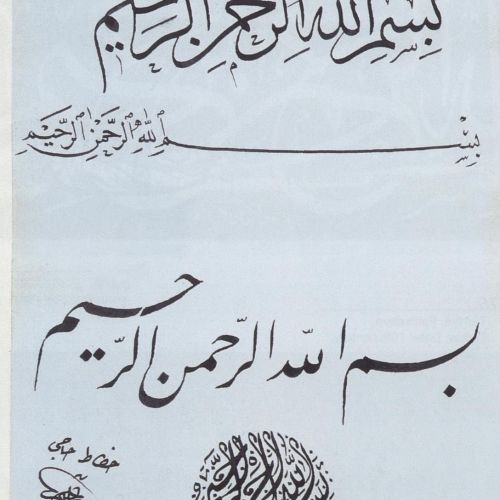 بِسْمِ اللهِ الرَّحْمٰنِ الرَّحِيْمِ
بِسْمِ اللهِ الرَّحْمٰنِ الرَّحِيْمِ
بسم الله الرّحمن الرّحيم